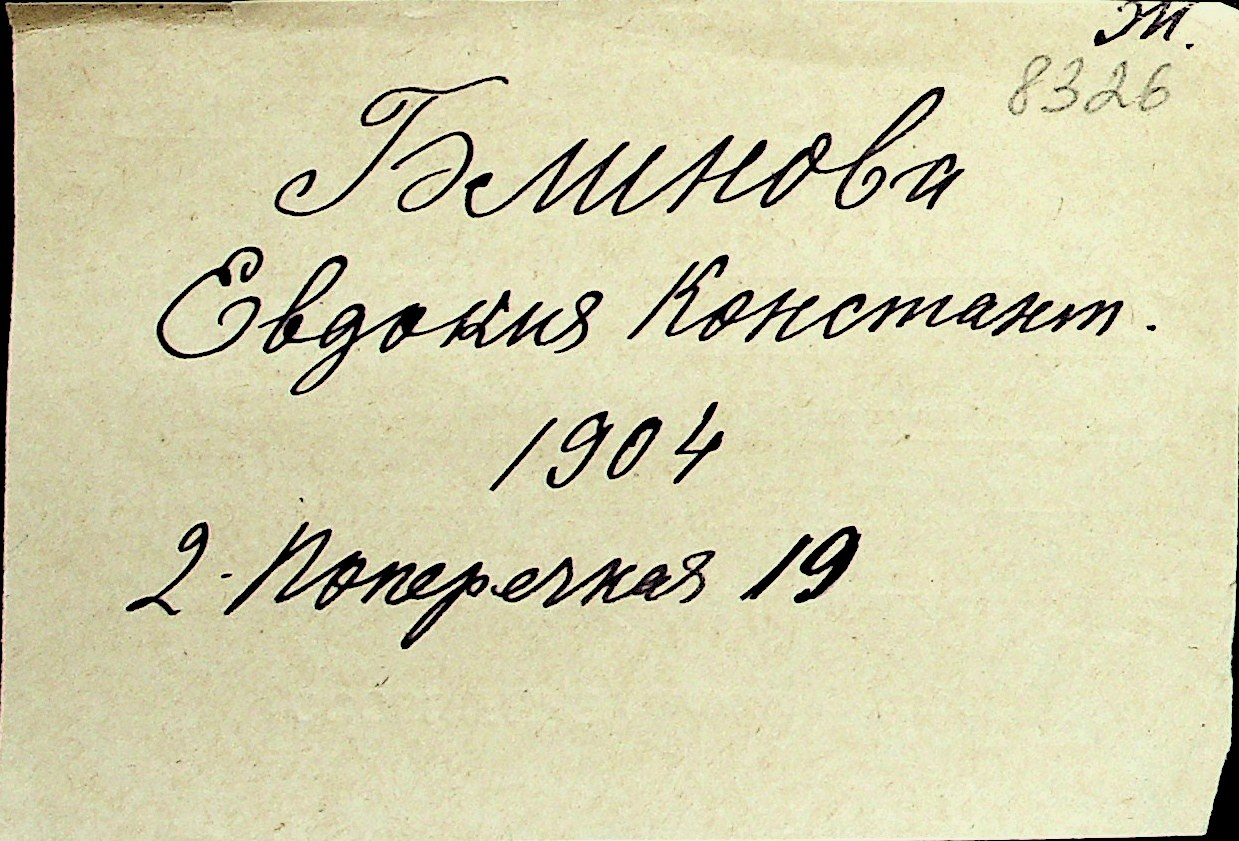 Т.
8326
Блинова
Евдокия Констант.
1904
2-Поперечная 19